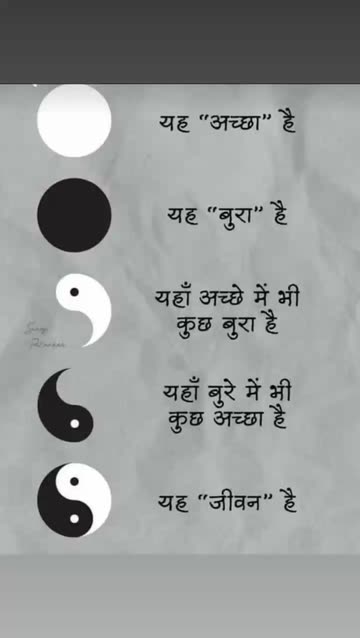 यह “अच्छा” है
यह “बुरा” है
यहाँ अच्छे में भी
कुछ बुरा है
यहाँ बुरे में भी
कुछ अच्छा है
यह “जीवन” है